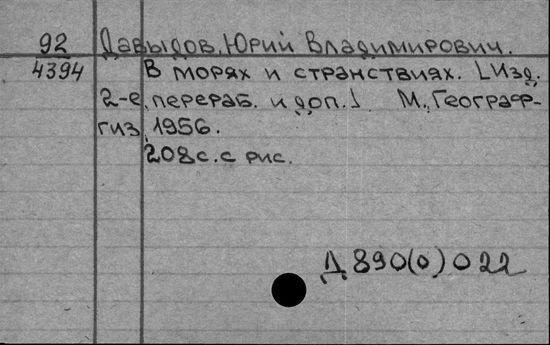 92 Давыдов, Юрий Владимирович.
4394 В морях и странствиях. [Изд.
2-е, перераб. и доп.] М., Географ-
гиз, 1956.
208 с. с рис.
Д 890(0) 022